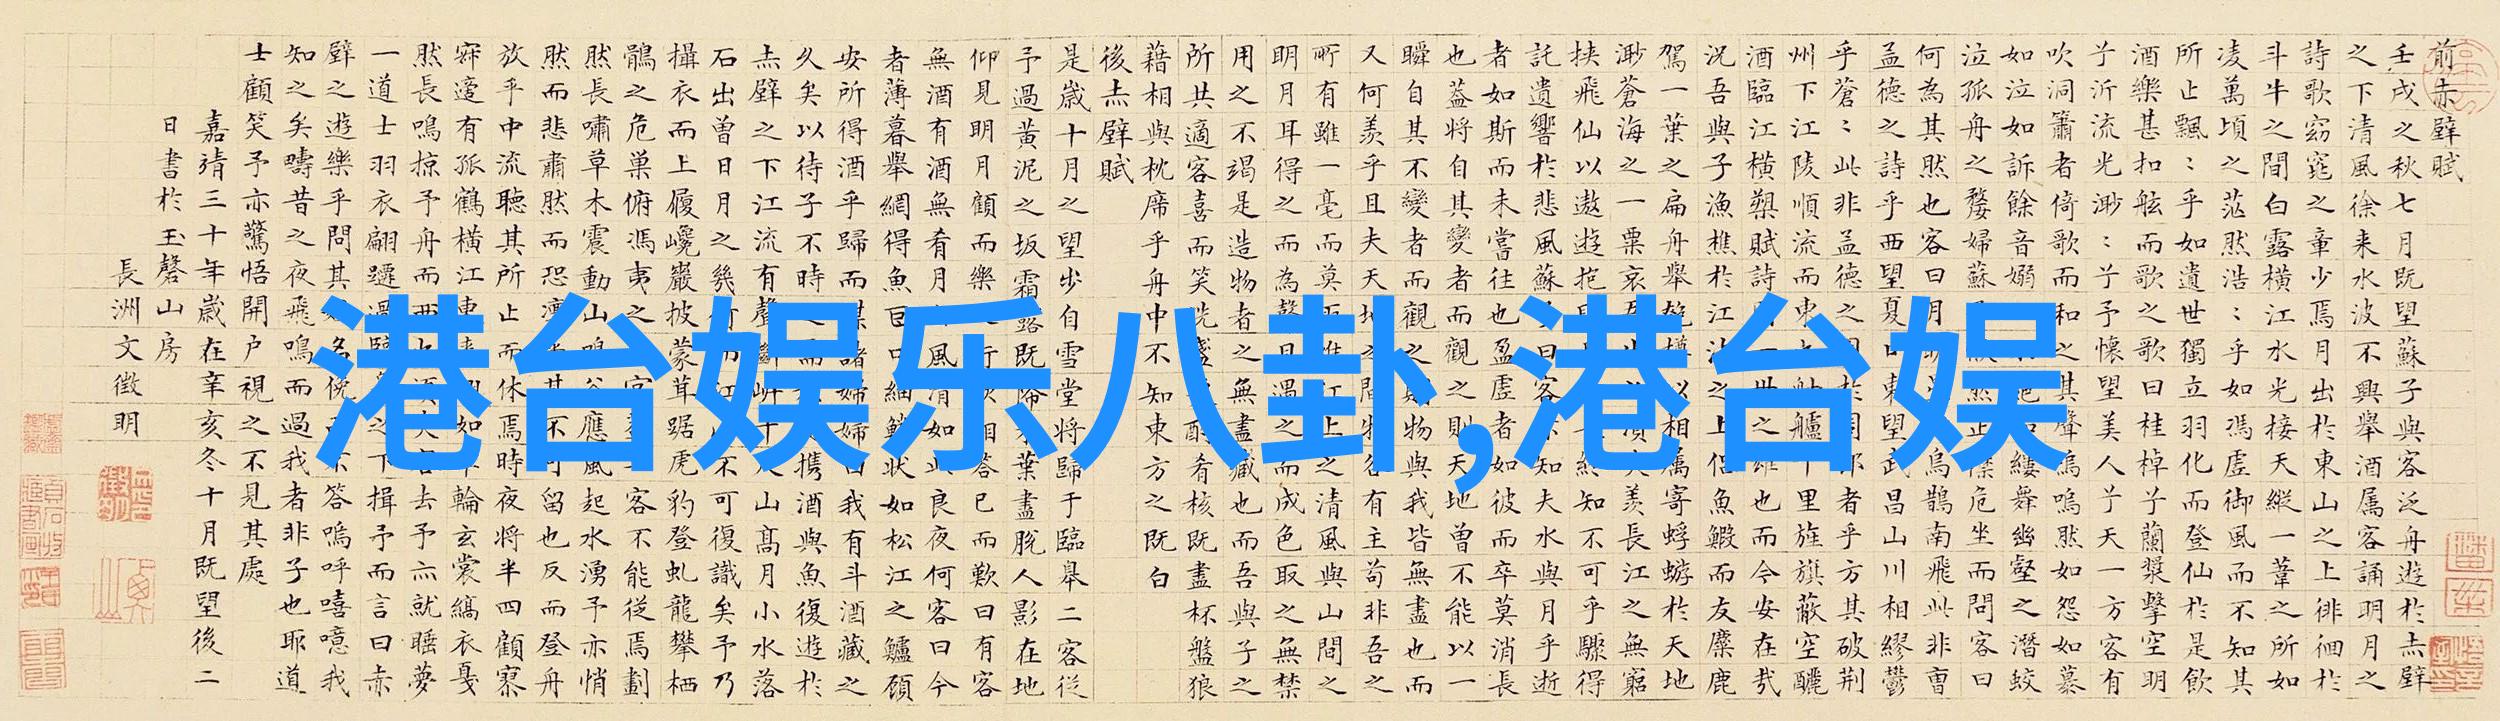 前赤壁賦
壬戌之秋七月既望蘇子與客泛舟遊於赤壁
之下清風徐来水波不興舉酒属客誦明月之
詩歌窈窕之章少焉月出於東山之上徘徊於
斗牛之間白露横江水光接天縱一葦之所如
凌萬頃之茫然浩〻乎如馮虚御風而不知其
所止飄〻乎如遺世獨立羽化而登仙於是飲
酒樂甚扣舷而歌之歌曰桂棹兮蘭槳擊空明
兮泝流光渺〻兮予懷望美人兮天一方客有
吹洞簫者倚歌而和之其聲嗚嗚然如怨如慕
如泣如訴餘音嫋縷舞幽壑之潛蛟
泣孤舟之嫠婦蘇危坐而問客曰
何為其然也客曰月烏鵲南飛此非曹
孟德之詩乎西望夏口東望武昌山川相繆鬱
乎蒼〻此非孟德之者乎方其破荆
州下江陵順流而東舳艫千里旌旗蔽空釃
酒臨江横槊賦詩世之雄也而今安在哉
況吾與子漁樵於江之上侶魚鰕而友麋鹿
駕一葉之扁舟舉匏樽以相属寄蜉蝣於天地
渺蒼海之一粟哀羨長江之無窮
挟飛仙以遨遊抱終知不可乎驟得
託遺響於悲風蘇曰客知夫水與月乎逝
者如斯而未嘗往也盈虚者如彼而卒莫消長
也葢将自其變者而觀之則天地曾不能以一
瞬自其不變者而觀之則物與我皆無盡也而
又何羨乎且夫天地之間物各有主苟非吾之
所有雖一毫而莫上之清風與山間之
明月耳得之而為聲目遇之而成色取之無禁
用之不竭是造物者之無盡藏也而吾與子之
所共適客喜而笑洗盞酌肴核既盡杯盤狼
藉相與枕席乎舟中不知東方之既白
後赤壁賦
是歲十月之望步自雪堂将歸于臨皋二客從
予過黃泥之坂霜露既降木葉盡脫人影在地
仰見明月顧而樂行歌相答已而歎曰有客
無酒有酒無肴月風清如此良夜何客曰今
者薄暮舉網得魚巨口細鱗狀如松江之鱸顧
安所得酒乎歸而謀諸婦婦曰我有斗酒藏之
久矣以待子不時之攜酒與魚復遊於
赤壁之下江流有聲斷岸千尺山高月小水落
石出曾日月之幾何而江不可復識矣予乃
攝衣而上履巉巖披蒙茸踞虎豹登虬龍攀栖
鶻之危巢俯馮夷之宮客不能從焉劃
然長嘯草木震動山鳴谷應風起水湧予亦悄
然而悲肅然而恐凛其不可留也反而登舟
放乎中流聽其所止而休焉時夜将半四顧寥
寂適有孤鶴横江東来如輪玄裳縞衣戞
然長鳴掠予舟而西也須去予亦就睡夢
一道士羽衣翩躚過臨之下揖予而言曰赤
壁之遊樂乎問其名俛而不答嗚呼嘻噫我
知之矣疇昔之夜飛鳴而過我者非子也耶道
士顧笑予亦驚悟開户視之不見其處
嘉靖三十年歲在辛亥冬十月既望後二
日書於玉磬山房
長洲文徵明
港台娱乐八卦,港台娱